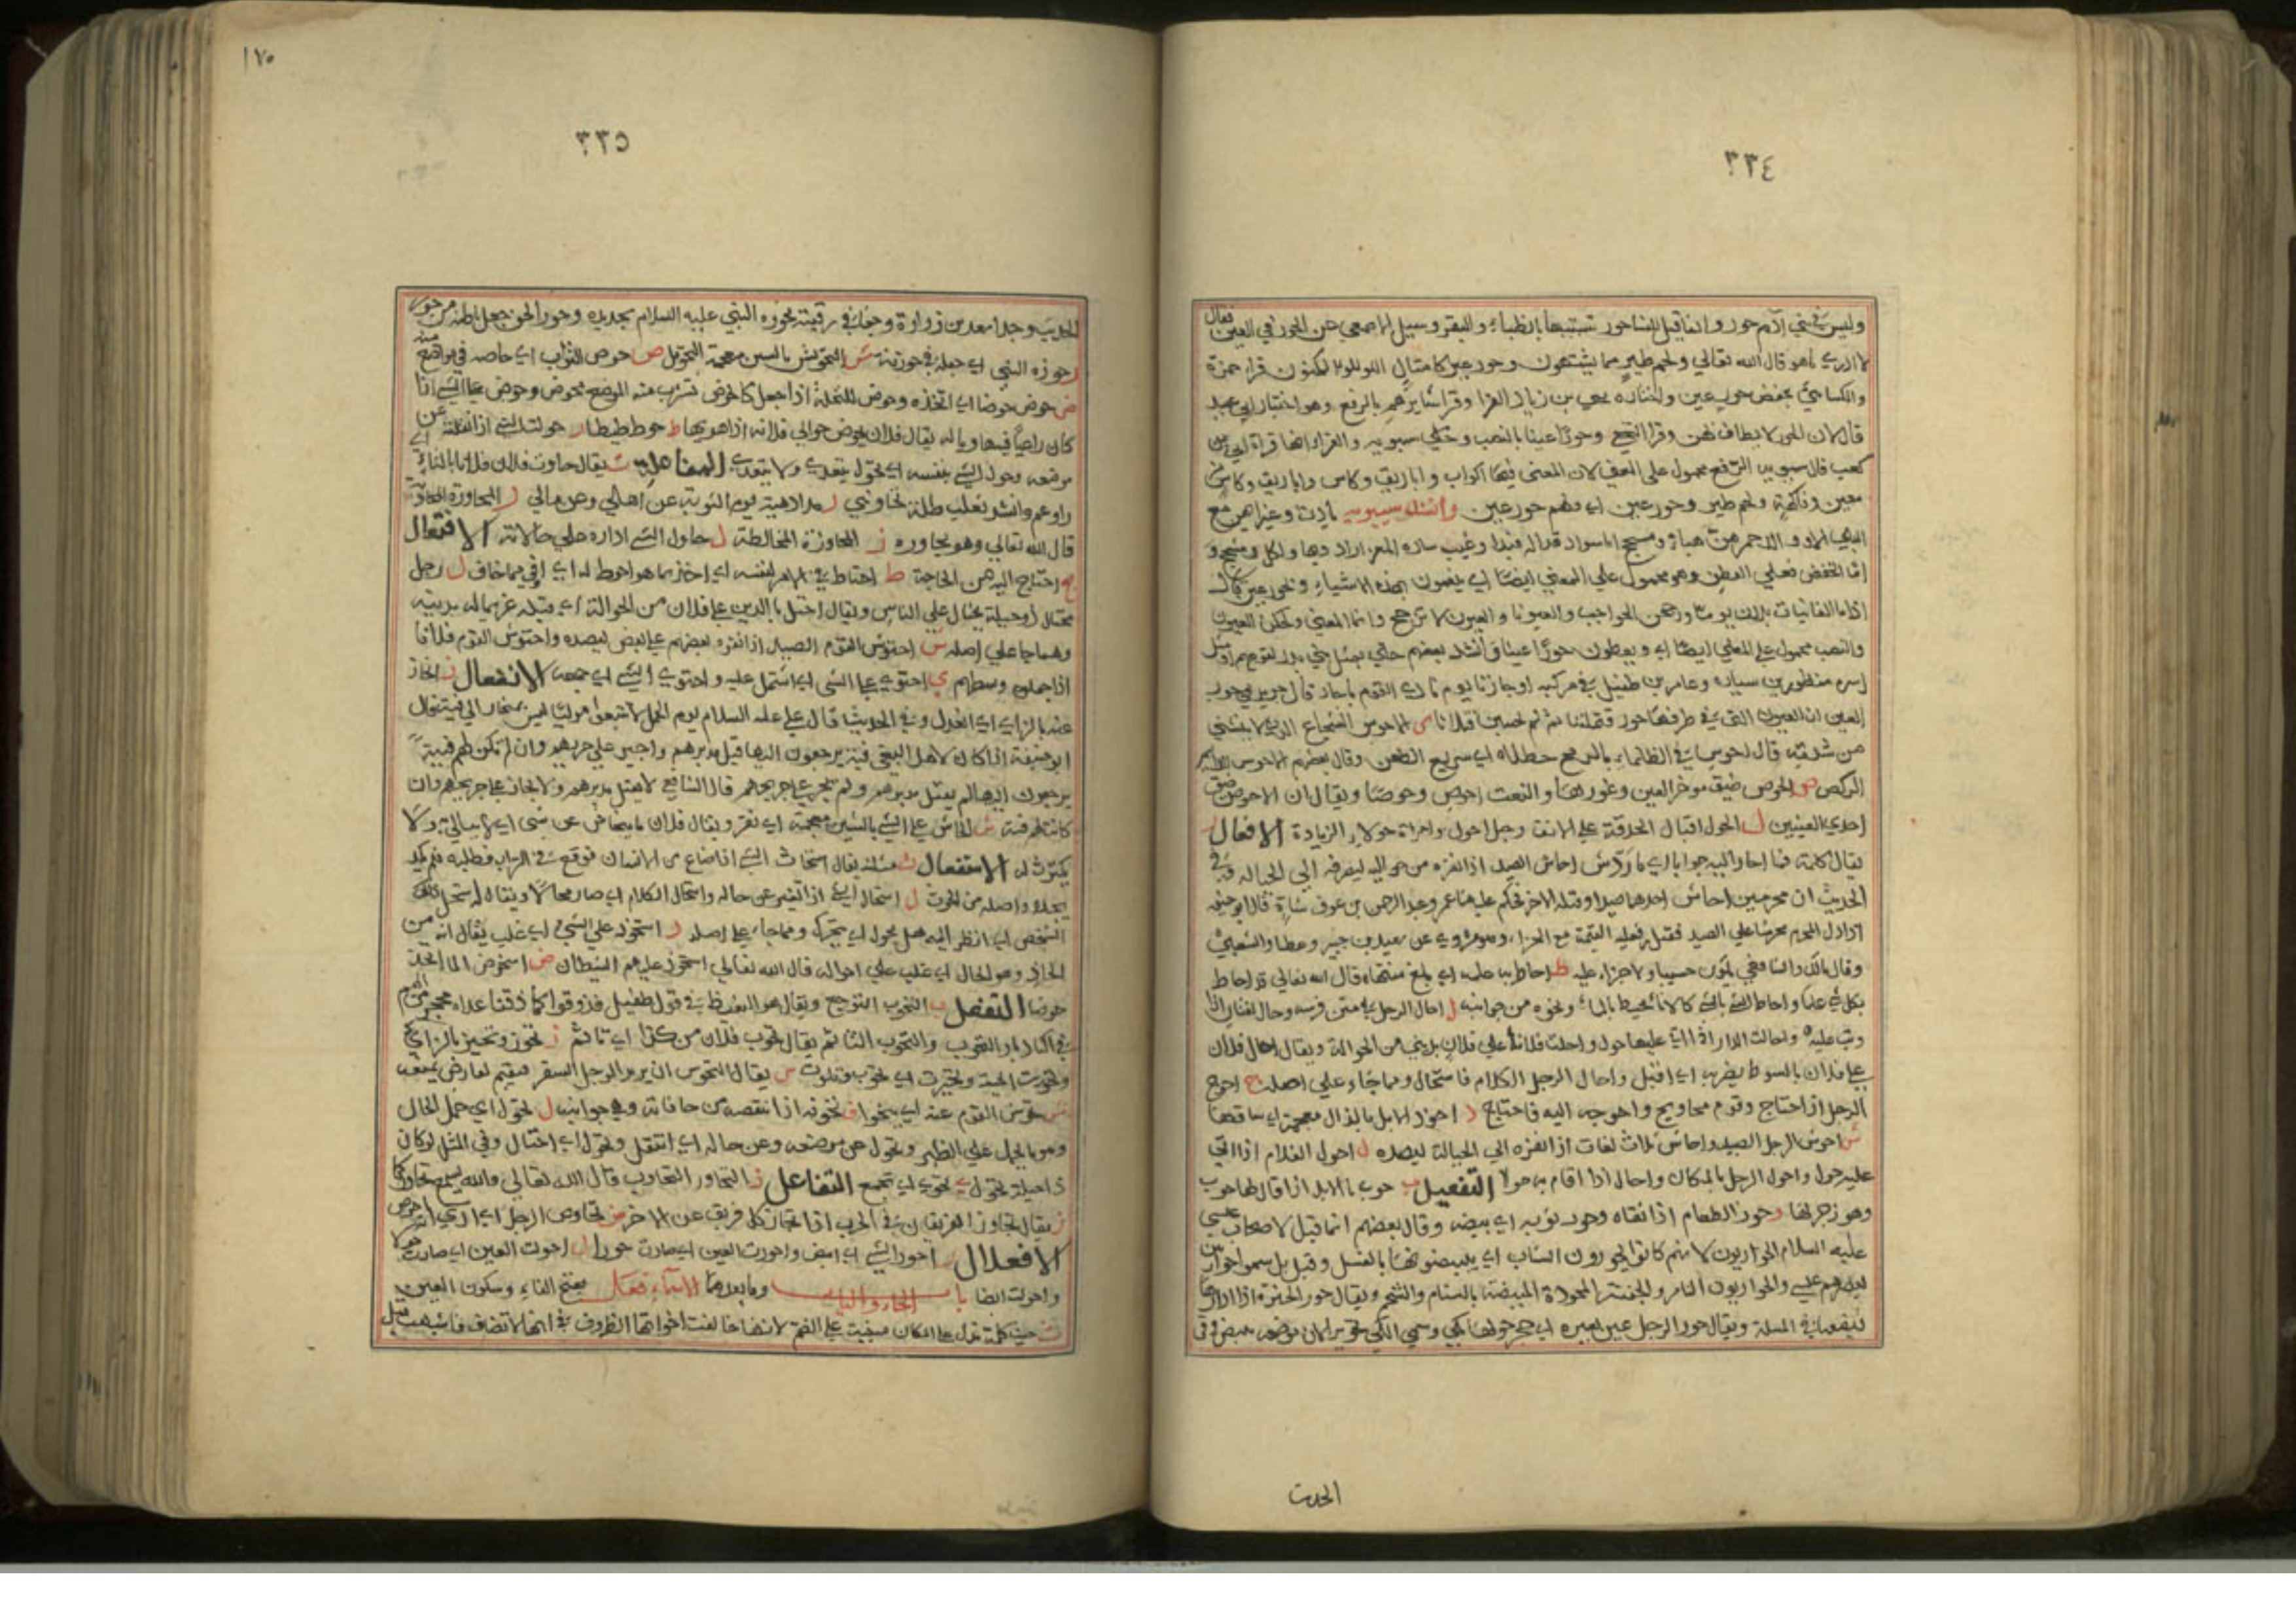 ٣٣٤
وليس في بني آدم حور وانما قيل للنساء حور تشبيها بالظباء والبقر وسيل الاصمعي عن الحور في العين فقال
لا ادري ما هو قال الله تعالى ولحم طير مما يشتهون وحور عين كامثال اللولو المكنون قرا حمزة
والكسائي بخفض حور عين واختاره يحيى بن زياد الفرا وقرا سايرهم بالرفع وهو اختيار ابي عبيد
قال لان الحور لا يطاف بهن وقرا النخعي وحورا عينا بالنصب وحكى سيبويه والفراء انها قراة ابي بن
كعب قال سيبويه الرفع محمول على المعنى لان المعنى فيها اكواب واباريق وكاس من
معين وفاكهة ولحم طير وحور عين اي ولهم حور عين وانشد سيبويه بادت وغير ايهن مع
اما الخفض فعلى العطف وهو محمول على المعنى ايضا اي ينعمون بهذه الاشياء وبحور عين كما قال
اذا ما الغانيات برزن يوما وزججن الحواجب والعيونا والعيون لا تزجج وانما المعنى وكحلن العيون
والنصب محمول على المعنى ايضا اي ويعطون حورا عينا وانشد بعضهم جئني بمثل بني بدر لقومهم او مثل
اسرة منظور بن سيار وعامر بن طفيل في مركبه او جارنا يوم نادى القوم يا حار قال جرير في حور
العين ان العيون التي في طرفها حور قتلننا ثم لم يحيين قتلانا س الاحوس الشجاع الذي لا ينثني
من شدته قال احوس في الظلماء بالرمح خطل اي سريع الطعن وقال بعضهم الاحوس
الركض ص الحوص ضيق موخر العين وغورها والنعت احوص وحوصا ويقال ان الاحوص ضيق
احدى العينين ل الحول اقبال الحدقة على الانف رجل احول وامراة حولاء الزيادة الافعال
يقال كلمته فما احار اليه جوابا اي ما رد ش احاش الصيد اذا نفره من حواليه ليصرفه الى الحبالة وفي
الحديث ان محرمين احاش احدهما صيدا وقتله الاخر فحكم عليهما عمر وعبد الرحمن بن عوف شاة قال ابو حنيفة
اذا دل المحرم محرما على الصيد فقتل فعليه القيمة مع الجزاء ومروي عن سعيد بن جبير وعطا والشعبي
وقال مالك والشافعي ولا جزاء عليه ط احاط به علمه اي بلغ منتهاه قال الله تعالى قد احاط
بكل شي علما واحاط الشي بالشي كالاناء يحيط بالماء ونحوه من جوانبه ل احال الرجل على متن فرسه وحال لغتان اذا
وثب عليه واحالت الدار اذا اتى عليها حول واحلت فلانا على فلان بديني من الحوالة ويقال احال فلان
على فلان بالسوط يضربه اي اقبل واحال الرجل الكلام فاستحال ومما جاء على اصله ج احوج
الرجل اذا احتاج وقوم محاويج واحوجه اليه فاحتاج ذ احوذ الابل بالذال معجمة اي ساقها
ش احوش الرجل الصيد واحاش ثلاث لغات اذا نفره الى الحبالة ليصيده ل احول الغلام اذا اتى
عليه حول واحول الرجل بالمكان واحال اذا اقام به حولا التفعيل ب حوب بالابل اذا قال لها حوب
وهو زجر لها ر حور الطعام اذا نقاه وحور ثوبه اي بيضه وقال بعضهم انما قيل لاصحاب عيسى
عليه السلام الحواريون لانهم كانوا يحورون الثياب اي يبيضونها بالغسل وقيل بل سموا حواريين
لنصرهم عيسى والحواريون الناصر والجفنة المحورة المبيضة بالسنام والشحم ويقال حور الخبزة اذا ادارها
ليضعها في الملة ويقال حور الرجل عين بعيره اي حجر حولها بكي وسمي الكي
الحديث
١٧٠
٣٣٥
الحديث وجد اسعد بن زرارة وجعا في رقبته فحوره النبي عليه السلام بحديدة وحور الخف جعل بطانته من حور
ز حوزه النبي اي جعله في حوزته ش التحويش بالشين معجمة التحويل ص حوص الثواب اي خاصه في مواضع منه
ض حوض حوضا اي اتخذه وحوض للنخلة اذا جعل كالحوض تشرب منه الموضع محوض وحوض على الشي اذا
كان راضيا فيها ويا له يقال فلان يحوض حوالي فلانة اذا هويها ط حوط حيطا ل حولت الشي اذا نقلته عن
موضعه وحول الشي بنفسه اي تحول يتعدى ولا يتعدى المفاعلة ت يقال حاوت فلان فلانا بالتاء اي
راوغه وانشد ثعلب ظلت تحاوتني رمداء داهية يوم الثوية عن اهلي وعن مالي ر المحاورة المجاوبة
قال الله تعالى وهو يحاوره ز المحاوزة المخالطة ل حاول الشي اداره على حالاته الافتعال
ج احتاج اليه من الحاجة ط احتاط في الامر لنفسه اي اخذ بما هو احوط له اي اوقى مما خاف ل رجل
محتال ذو حيلة يحتال على الناس ويقال احتل بالدين على فلان من الحوالة اي
وهما جاء على اصله ش احتوش القوم الصيد اذا نفره بعضهم على بعض ليصيده واحتوش القوم فلانا
اذا جعلوه وسطهم ي احتوى على الشي اي اشتمل عليه واحتوى الشي اي جمعه الانفعال ز انحاز
عنه بالزاي اي انعدل وفي الحديث قال علي عليه السلام يوم الجمل لا تتبعوا موليا ليس بمنحاز الى فئة فقال
ابو حنيفة اذا كان لاهل البغي فئة يرجعون اليها قتل مدبرهم واجهز على جريحهم وان لم تكن لهم فئة
يرجعون اليها لم يقتل مدبرهم ولم يجهز على جريحهم قال الشافعي لا يقتل مدبرهم ولا يجاز على جريحهم وان
كانت لهم فئة ش انحاش على الشي بالشين معجمة اي نفر ويقال فلان ما ينحاش عن شي اي لا يبالي ولا
يكترث له الاستفعال ث مثلثة يقال استحاث الشي اذا ضاع من الانسان فوقع في التراب فطلبه فلم يكد
يجده واصله من الحوث ل استحال الشي اذا تغير عن حاله واستحال الكلام اي صار محالا ويقال استحل ذلك
الشخص اي انظر اليه هل يحول اي يتحرك ومما جاء على اصله ذ استحوذ على الشي اي غلب يقال انه من
الحاذ وهو الحال اي غلب على احواله قال الله تعالى استحوذ عليهم الشيطان ض استحوض الماء اتخذ
حوضا التفعل ب التحوب التوجع ويقال هو الغيظ في قول طفيل فذوقوا كما ذقنا غداة محجر من
الغيظ في اكبادنا والتحوب والتحوب التاثم يقال تحوب فلان من كذا اي تاثم ز تحوز وتحيز بالزاي
وتحوزت الحية وتحيزت اي تحوت وتلوت س يقال التحوس ان يريد الرجل السفر فيقيم لعارض يمنعه
ش تحوش القوم عنه اي تنحوا ف تحوفه اذا تنقصه من حافاته وهي جوانبه ل تحول اي حمل الحال
وهو ما يحمل على الظهر وتحول عن موضعه وعن حاله اي انتقل وتحول اي احتال وفي المثل لو كان
ذا حيلة تحول ي تحوى اي تجمع التفاعل ر التحاور التجاوب قال الله تعالى والله يسمع تحاوركما
ز يقال تحاوز الفريقان في الحرب اذا انحاز كل فريق عن الاخر ص تحاوص الرجل اي ارى انه احوص
الافعلال ر احور الشي اي ابيض واحورت العين اي صارت حوراء ل احولت العين اي صارت حولا
واحولت ايضا باب الحاء والياء وما بعدهما الاسماء فعل بفتح الفاء وسكون العين
ث حيث كلمة تدل على المكان مبنية على الضم لانها خالفت اخواتها الظروف في انها لا تضاف فاشبهت قبل